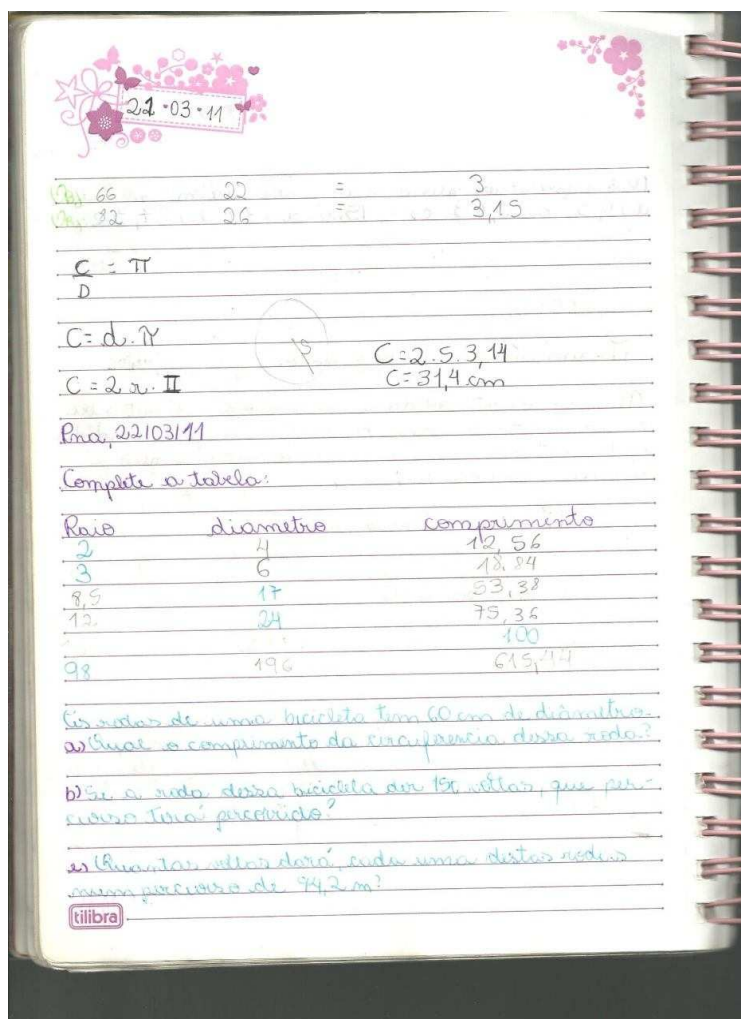 21 • 03 • 11
66 22 = 3
82 26 = 3,15
C = π
D
C = d. π
5
C = 2.5.3,14
C = 2 r. II
C = 31,4 cm
22/03/11
Complete a tabela:
Raio diametro comprimento
2 4 12,56
3 6 18.84
8,5 17 53,38
12 24 75,36
100
98 196 615,44
As rodas de uma bicicleta tem 60 cm de diâmetro.
a) Qual o comprimento da circuferencia dessa roda?
b) Se a roda dessa bicicleta der voltas, que per-
curso terá percorrido?
c) Quantas voltas dará, cada uma destas rodas
num percurso de 94,2 m?
tilibra